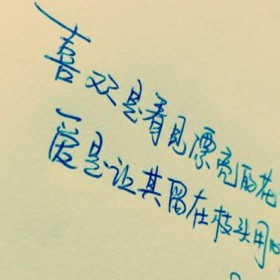 喜欢是看见漂亮的花
爱是让其留在枝头用心